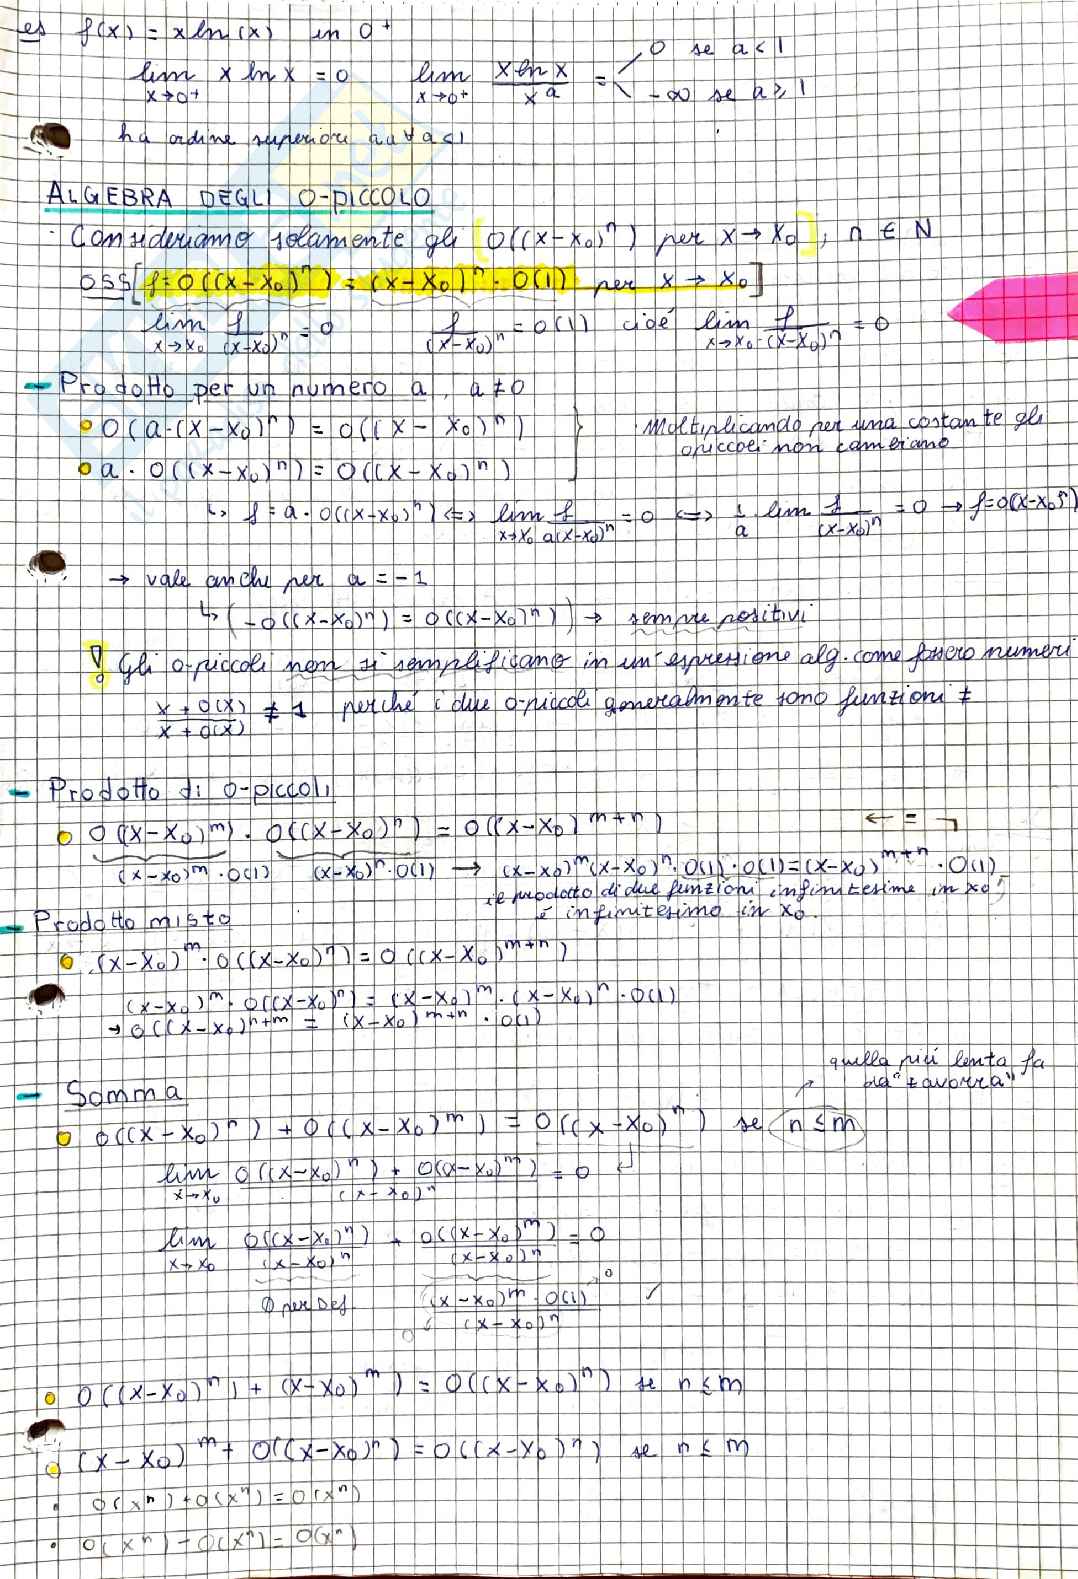 es f(x) = x ln(x) in 0⁺
lim x→0⁺ x ln x = 0 lim x→0⁺ (x ln x)/(x^a) = 0 se a < 1
-∞ se a ≥ 1
ha ordine superiore a a ∀ a < 1
ALGEBRA DEGLI O-PICCOLO
· Consideriamo solamente gli [o((x-x₀)ⁿ) per x → x₀], n ∈ N
OSS[f = o((x-x₀)ⁿ) = (x-x₀)ⁿ · o(1) per x → x₀]
lim x→x₀ f/(x-x₀)ⁿ = 0 f/(x-x₀)ⁿ = o(1) cioé lim x→x₀ f/(x-x₀)ⁿ = 0
- Prodotto per un numero a, a ≠ 0
• o(a·(x-x₀)ⁿ) = o((x-x₀)ⁿ)
• a · o((x-x₀)ⁿ) = o((x-x₀)ⁿ)
Moltiplicando per una costante gli
opiccoli non cambiano
↳ f = a · o((x-x₀)ⁿ) ⇔ lim x→x₀ f/a(x-x₀)ⁿ = 0 ⇔ 1/a lim f/(x-x₀)ⁿ = 0 → f = o(x-x₀)ⁿ)
→ vale anche per a = -1
↳ (-o((x-x₀)ⁿ) = o((x-x₀)ⁿ)) → sempre positivi
! Gli o-piccoli non si semplificano in un'espressione alg. come fossero numeri
(x + o(x))/(x + o(x)) ≠ 1 perché i due o-piccoli generalmente sono funzioni ≠
- Prodotto di o-piccoli
• o((x-x₀)^m) · o((x-x₀)ⁿ) = o((x-x₀)^(m+n)) ← = ¬
(x-x₀)^m · o(1) (x-x₀)ⁿ · o(1) → (x-x₀)^m (x-x₀)ⁿ · o(1) · o(1) = (x-x₀)^(m+n) · o(1)
il prodotto di due funzioni infinitesime in x₀,
é infinitesimo in x₀.
- Prodotto misto
• (x-x₀)^m · o((x-x₀)ⁿ) = o((x-x₀)^(m+n))
(x-x₀)^m · o((x-x₀)ⁿ) = (x-x₀)^m · (x-x₀)ⁿ · o(1)
→ o((x-x₀)^(n+m) = (x-x₀)^(m+n) · o(1)
quella piú lenta fa
da "zavorra"
- Somma
• o((x-x₀)ⁿ) + o((x-x₀)^m) = o((x-x₀)ⁿ) se n ≤ m
lim x→x₀ (o((x-x₀)ⁿ) + o((x-x₀)^m))/(x-x₀)ⁿ = 0
lim x→x₀ o((x-x₀)ⁿ)/(x-x₀)ⁿ + o((x-x₀)^m)/(x-x₀)ⁿ = 0
0 per Def. ((x-x₀)^m · o(1))/(x-x₀)ⁿ → 0 ✓
0
• o((x-x₀)ⁿ) + (x-x₀)^m) = o((x-x₀)ⁿ) se n ≤ m
• (x-x₀)^m + o((x-x₀)ⁿ) = o((x-x₀)ⁿ) se n ≤ m
· o(xⁿ) + o(xⁿ) = o(xⁿ)
· o(xⁿ) - o(xⁿ) = o(xⁿ)